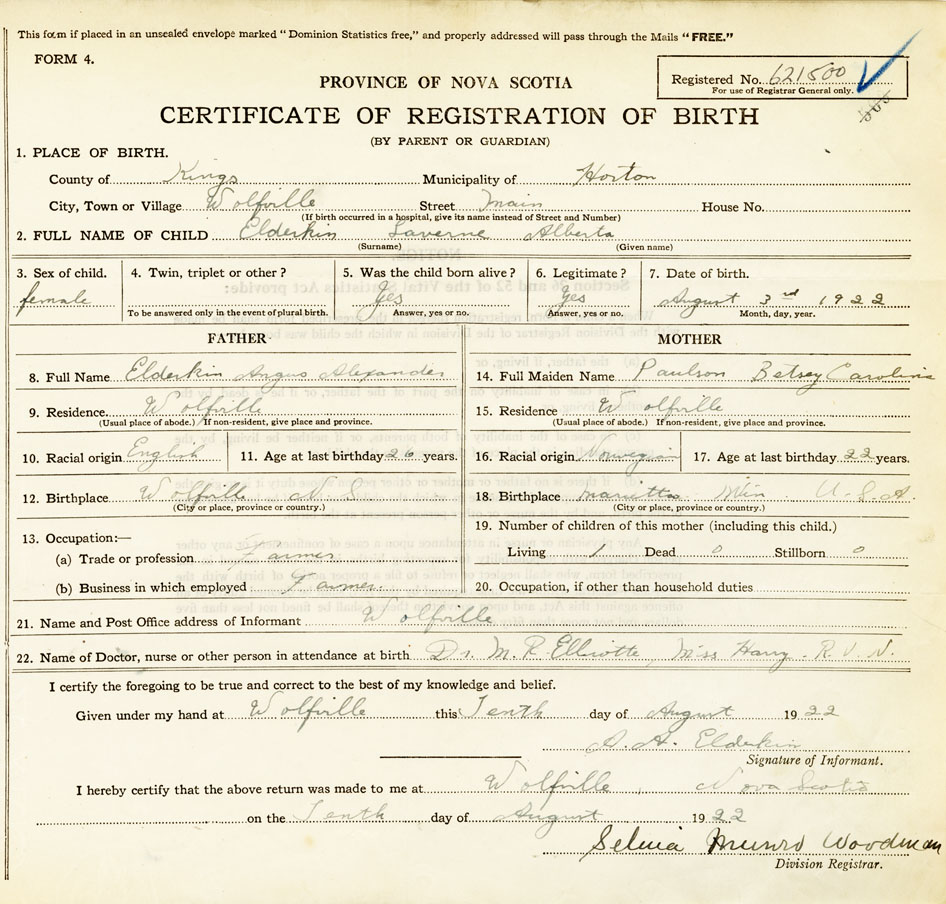 This form if placed in an unsealed envelope marked "Dominion Statistics free," and properly addressed will pass through the Mails "FREE."
FORM 4.
Registered No. 621500
For use of Registrar General only.
PROVINCE OF NOVA SCOTIA
CERTIFICATE OF REGISTRATION OF BIRTH
(BY PARENT OR GUARDIAN)
1. PLACE OF BIRTH.
County of Kings Municipality of Horton
City, Town or Village Wolfville Street Main House No.
(If birth occurred in a hospital, give its name instead of Street and Number)
2. FULL NAME OF CHILD Elderkin Laverne Alberta
(Surname) (Given name)
3. Sex of child. 4. Twin, triplet or other? 5. Was the child born alive? 6. Legitimate? 7. Date of birth.
female Yes Yes August 3rd 1922
To be answered only in the event of plural birth. Answer, yes or no. Answer, yes or no. Month, day, year.
FATHER
8. Full Name Elderkin Angus Alexander
9. Residence. Wolfville
(Usual place of abode.) If non-resident, give place and province.
10. Racial origin English 11. Age at last birthday 26 years.
12. Birthplace Wolfville N S
(City or place, province or country.)
13. Occupation:—
(a) Trade or profession Farmer
(b) Business in which employed Farmer
MOTHER
14. Full Maiden Name Paulson Betsey Caroline
15. Residence Wolfville
(Usual place of abode.) If non-resident, give place and province.
16. Racial origin Norwegian 17. Age at last birthday 22 years.
18. Birthplace Marietta Min U.S.A.
(City or place, province or country.)
19. Number of children of this mother (including this child.)
Living 1 Dead 0 Stillborn 0
20. Occupation, if other than household duties
21. Name and Post Office address of Informant Wolfville
22. Name of Doctor, nurse or other person in attendance at birth Dr. M. R. Elliotte, Miss Harry. R.V.N.
I certify the foregoing to be true and correct to the best of my knowledge and belief.
Given under my hand at Wolfville this Tenth day of August 1922
A. A. Elderkin
Signature of Informant.
I hereby certify that the above return was made to me at Wolfville, Nova Scotia
on the Tenth day of August 1922
Selina Munro Woodman
Division Registrar.